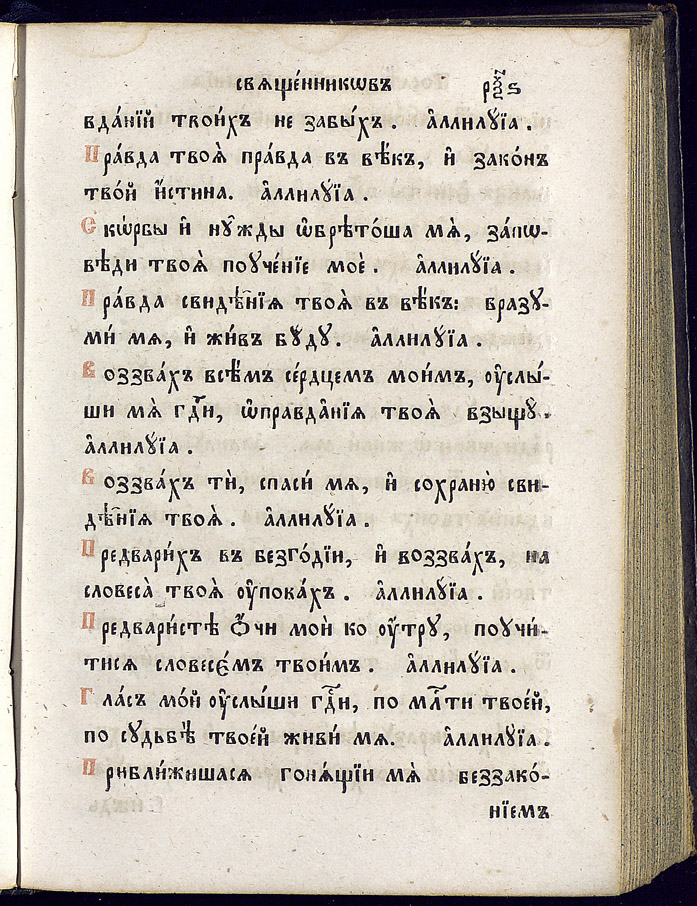 свѧще́нникѡвъ рч҃ѕ
вда́нїй твои́хъ не забы́хъ. а҆ллилꙋ́їа.
Пра́вда твоѧ̀ пра́вда въ вѣ́къ, и҆ зако́нъ
тво́й и҆́стина. а҆ллилꙋ́їа.
Скѡ́рбы и҆ нꙋ́жды ѡ҆брѣто́ша мѧ̀, за́пѡ-
вѣди твоѧ̀ поꙋче́нїе моѐ. а҆ллилꙋ́їа.
Пра́вда свидѣ̑нїѧ твоѧ̀ въ вѣ́къ: вразꙋ-
ми́ мѧ, и҆ жи́въ бꙋ́дꙋ. а҆ллилꙋ́їа.
Воззва́хъ всѣ́мъ се́рдцемъ мои́мъ, ѹ҆слы́-
ши мѧ̀ гдⷭ҇и, ѡ҆правда̑нїѧ твоѧ̀ взыщꙋ̀.
а҆ллилꙋ́їа.
Воззва́хъ тѝ, спаси́ мѧ, и҆ сохраню̀ сви-
дѣ̑нїѧ твоѧ̀. а҆ллилꙋ́їа.
Предвари́хъ въ безго́дїи, и҆ воззва́хъ, на
словеса̀ твоѧ̀ ѹ҆пова́хъ. а҆ллилꙋ́їа.
Предвари́стѣ ѻ҆́чи моѝ ко ѹ҆́трꙋ, поꙋчи́-
тисѧ словесє́мъ твои́мъ. а҆ллилꙋ́їа.
Гла́съ мо́й ѹ҆слы́ши гдⷭ҇и, по млⷭ҇ти твое́й,
по сꙋдьбѣ̀ твое́й живи́ мѧ. а҆ллилꙋ́їа.
Прибли́жишасѧ гонѧ́щїи мѧ̀ беззако́-
нїемъ